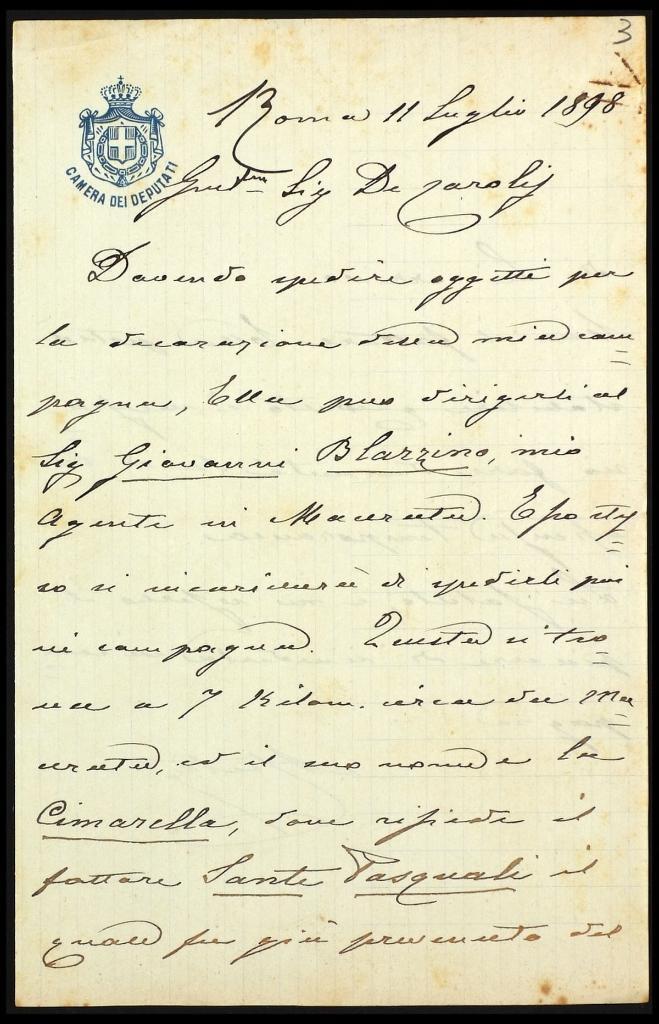 3
Roma 11 Luglio 1898
CAMERA DEI DEPUTATI
Sig De Carolis
Dovendo spedire oggetti per
la decorazione della mia cam=
pagna, Ella può dirigerli al
Sig Giovanni Blazzino, mio
Agente in Macerata. E
so si incaricherà di spedirli poi
in campagna. Questa si tro=
va a 7 Kilom. circa da Ma=
cerata, ed il suo nome è la
Cimarella, dove risiede il
fattore Sante Pasquali il
quale fu già prevenuto del